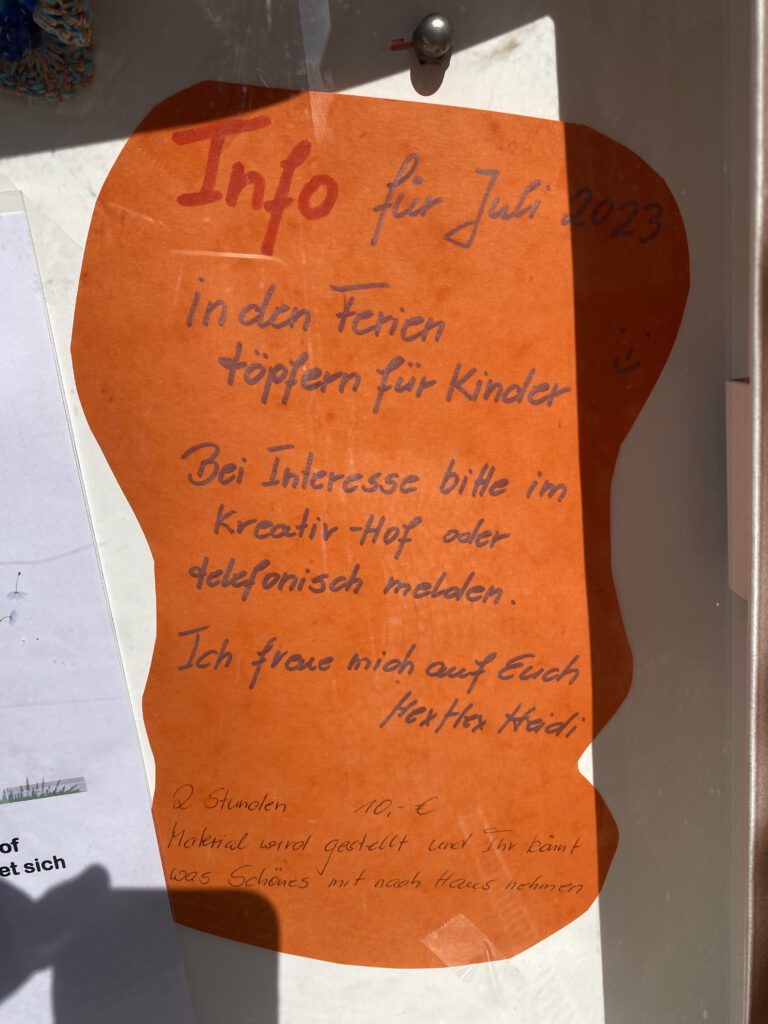 Info für Juli 2023
in den Ferien
töpfern für Kinder
Bei Interesse bitte im
Kreativ-Hof oder
telefonisch melden.
Ich freue mich auf Euch
HexHex Heidi
2 Stunden 10,- €
Material wird gestellt und Ihr könnt
was Schönes mit nach Haus nehmen
of
et sich